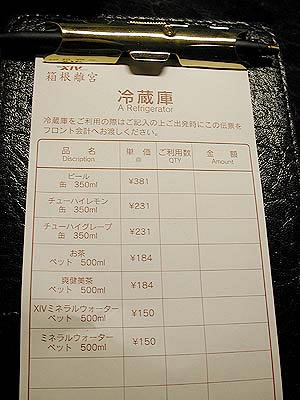 XIV
箱根離宮
冷蔵庫
A Refrigerator
冷蔵庫をご利用の際はご記入の上ご出発時にこの伝票を
フロント会計へお渡しください。
品 名 単 価 ご利用数 金 額
Discription @ QTY Amount
ビール
缶 350ml ¥381
チューハイレモン
缶 350ml ¥231
チューハイグレープ
缶 350ml ¥231
お茶
ペット 500ml ¥184
爽健美茶
ペット 500ml ¥184
XIVミネラルウォーター
ペット 500ml ¥150
ミネラルウォーター
ペット 500ml ¥150